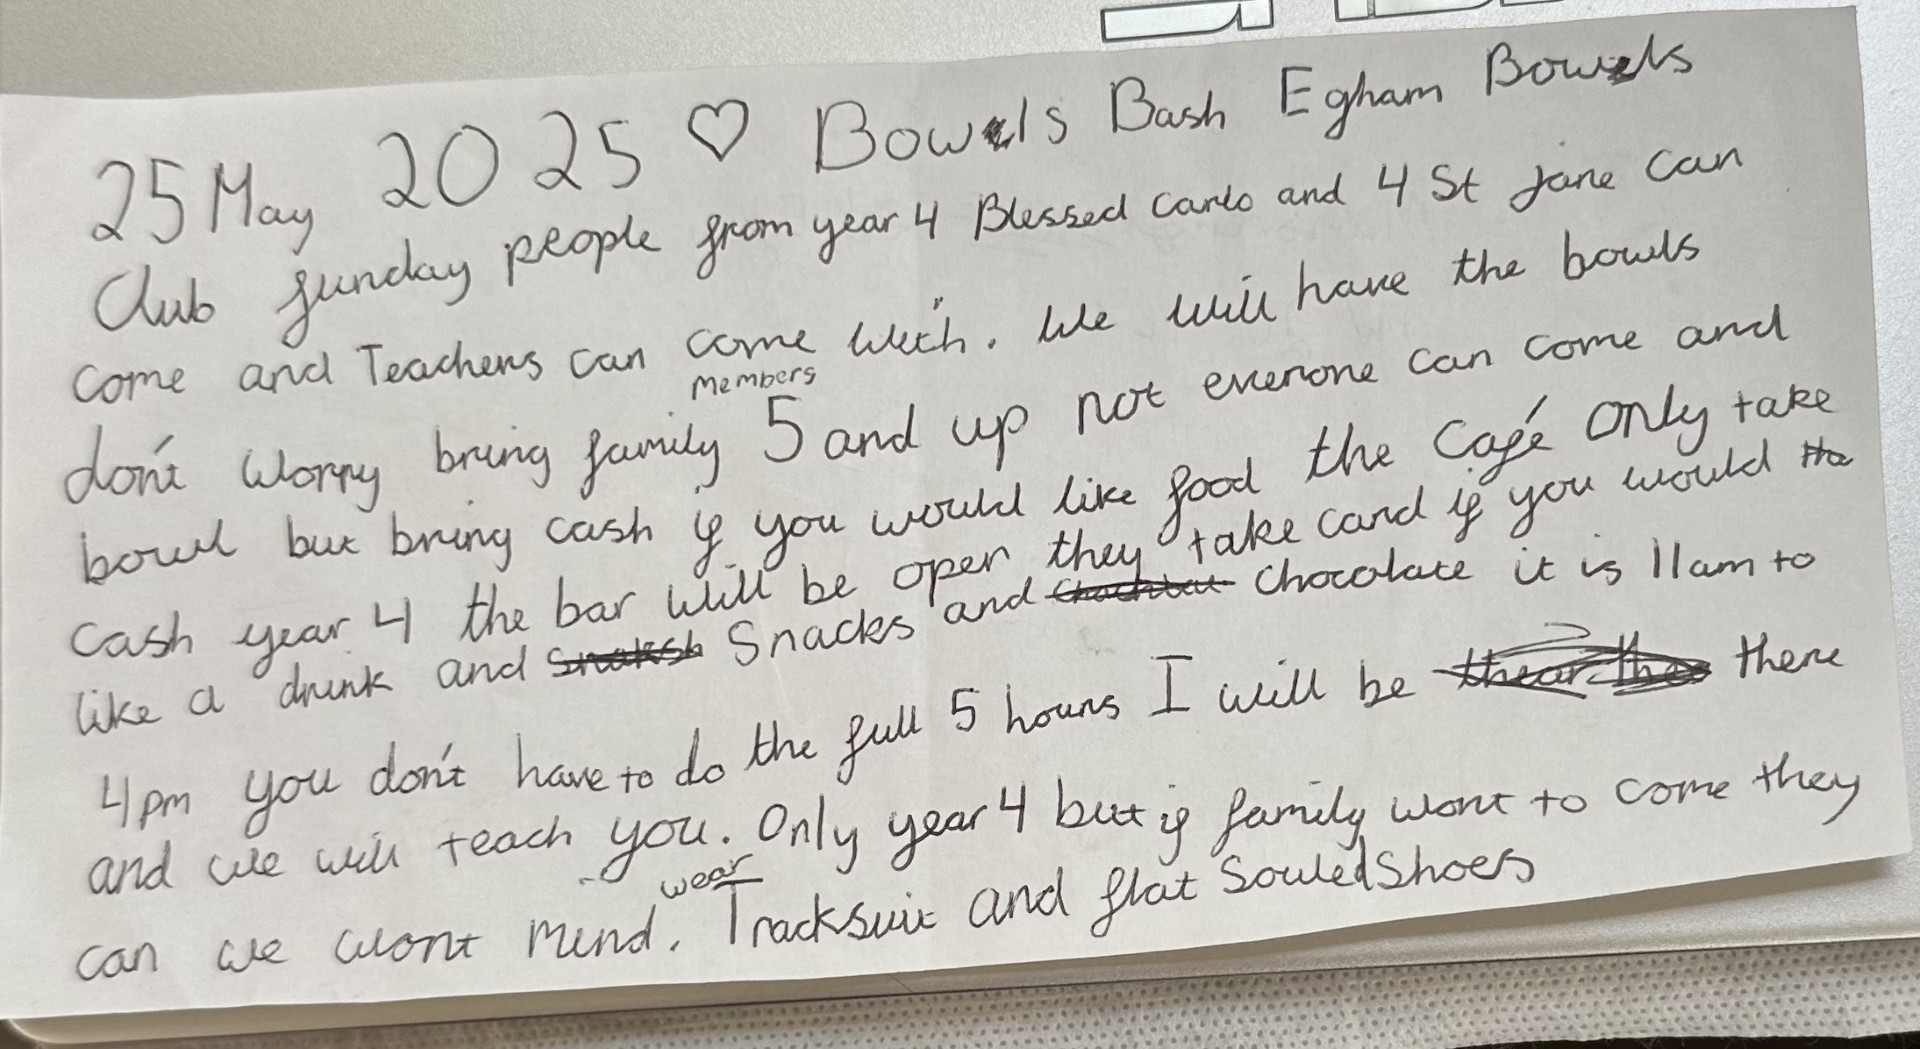 25 May 2025 ♡ Bowls Bash Egham Bowls
Club sunday people from year 4 Blessed Carlo and 4 St jane can
come and Teachers can come with. We will have the bowls
members
don't worry bring family 5 and up not everone can come and
bowl but bring cash if you would like food the Café only take
cash year 4 the bar will be open they take card if you would
like a drink and Snacks and Chocolate it is 11am to
4pm you don't have to do the full 5 hours I will be there
and we will teach you. Only year 4 but if family want to come they
wear
can we wont mind. Tracksuit and flat Souled Shoes